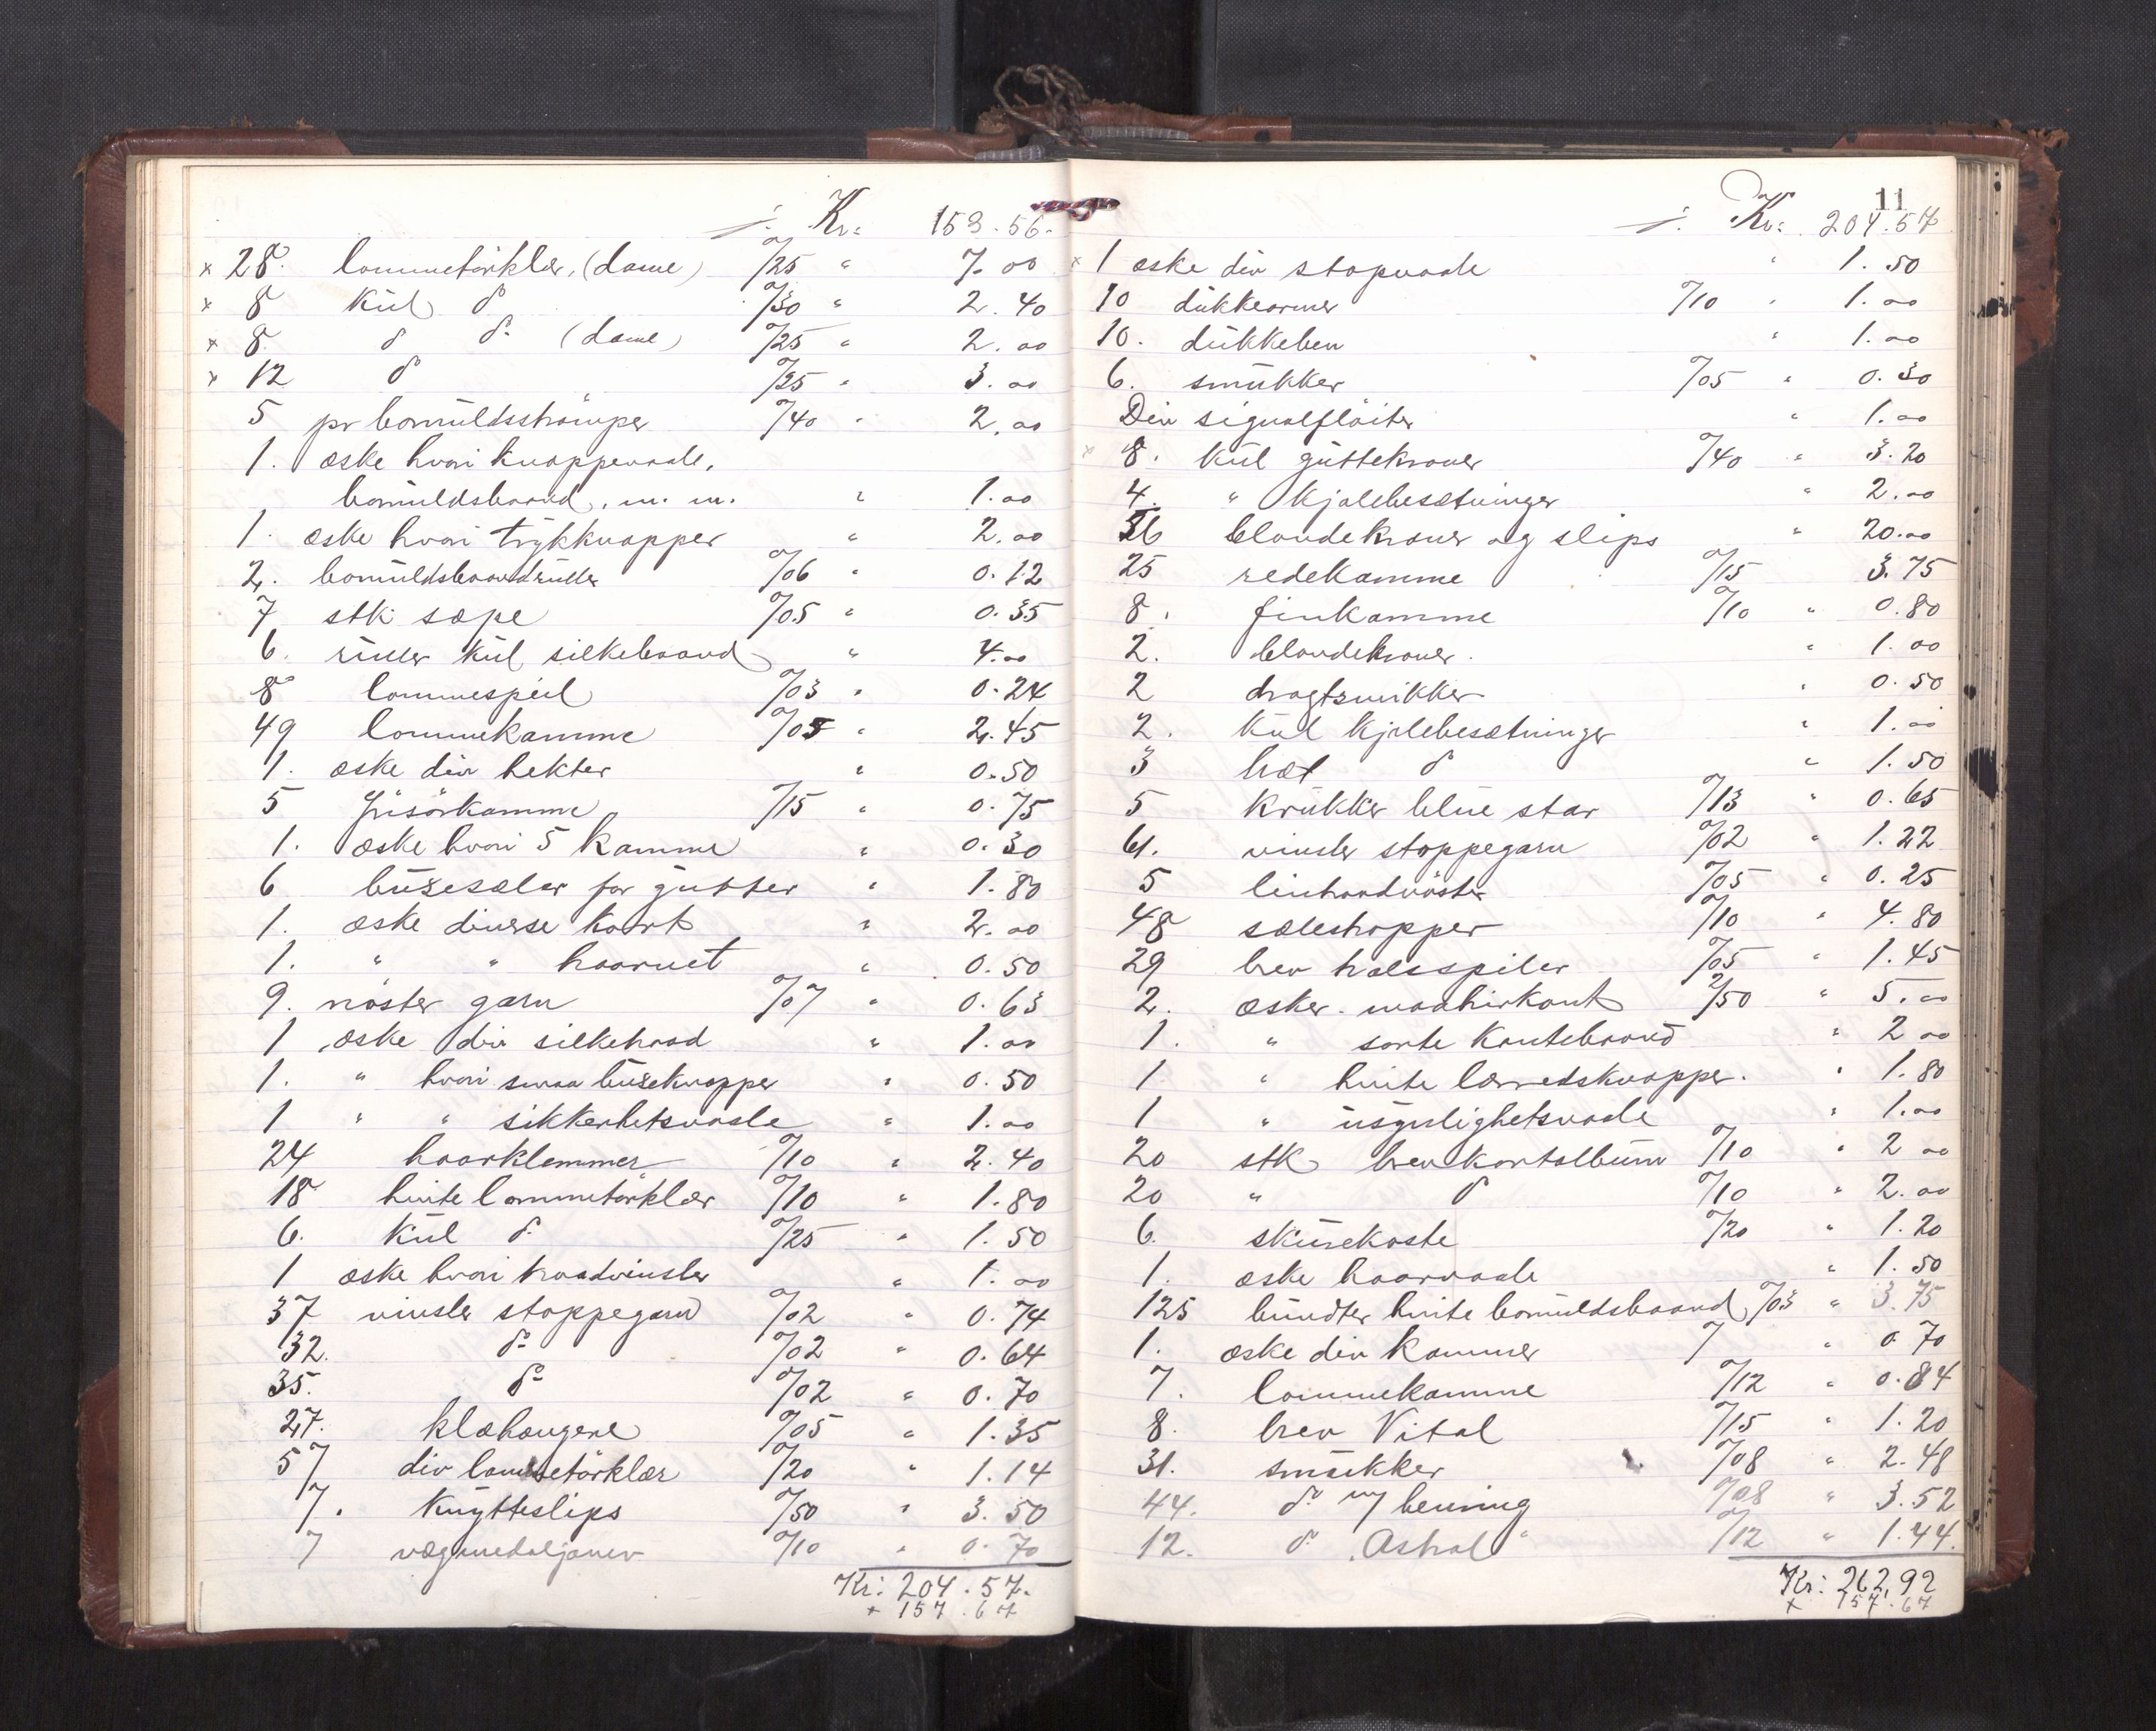 /. Kr: 153.56.
x 28. lommetörklær, (dame) º/25 " 7.00
x 8 kul dº º/30 " 2.40
x 8 dº dº (dame) º/25 " 2.00
x 12 dº º/25 " 3.00
5 pr bomuldsströmper º/40 " 2.00
1. æske hvori knappenaale,
bomuldsbaand, m. m. " 1.00
1. æske hvori trykknapper " 2.00
2. bomuldsbaandruller º/06 " 0.12
7 stk sæpe º/05 " 0.35
6. ruller kul silkebaand " 4.00
8 lommespeil º/03 " 0.24
49 lommekamme º/05 " 2.45
1. æske div hekter " 0.50
5 frisörkamme º/15 " 0.75
1. æske hvori 5 kamme " 0.30
6 buxesæler for gutter " 1.80
1. æske diverse kort " 2.00
1. " " haarnet " 0.50
9. nöster garn º/07 " 0.63
1 æske div silketraad " 1.00
1. " hvori smaa buxeknapper " 0.50
1 " " sikkerhetsnaale " 1.00
24 haarklemmer º/10 " 2.40
18 hvite lommetörklær º/10 " 1.80
6. kul dº º/25 " 1.50
1 æske hvori traadvinsler " 1.00
37 vinsler stoppegarn º/02 " 0.74
32. dº º/02 " 0.64
35. dº º/02 " 0.70
27. klæhængere º/05 " 1.35
57 div lommetörklær º/20 " 1.14
7. knytteslips º/50 " 3.50
7 vægmedaljoner º/10 " 0.70
Kr: 204.57.
x 157.67
11
/. Kr: 204.57
x 1 æske div stopnaale " 1.50
10 dukkearmer º/10 " 1.00
10. dukkeben " 1.00
6. smukker º/05 " 0.30
Div signalflöiter " 1.00
x 8. kul guttekraver º/40 " 3.20
4. " kjolebesætninger " 2.00
36 blondekraver og slips " 20.00
25 redekamme º/15 3.75
8. finkamme º/10 " 0.80
2. blondekraver. " 1.00
2 dragtsmikker " 0.50
2. kul kjolebesætninger " 1.00
3 hvit dº " 1.50
5 krukker blue star º/13 " 0.65
61. vinsler stoppegarn º/02 " 1.22
5 lintraadnöster º/05 " 0.25
48 sælestropper º/10 " 4.80
29 brev halsspiler º/05 " 1.45
2. æsker mohairkant 2/50 " 5.00
1. " sorte kantebaand " 2 00
1 " hvite lærredsknapper. " 1.80
1 " usynlighetsnaale " 1.00
20 stk brevkortalbum º/10 " 2 00
20 " dº º/10 " 2.00
6. skurekoste º/20 " 1.20
1. æske haarnaale " 1.50
125 bundter hvite bomuldsbaand º/03 " 3.75
1. æske div kammer " 0 70
7. lommekamme º/12 " 0.84
8. brev Vital º/15 " 1.20
31. smukker º/08 " 2.48
44. dº m/ benring º/08 " 3.52
12. dº "Astral" º/12 " 1.44.
Kr: 262,92
x 157.67